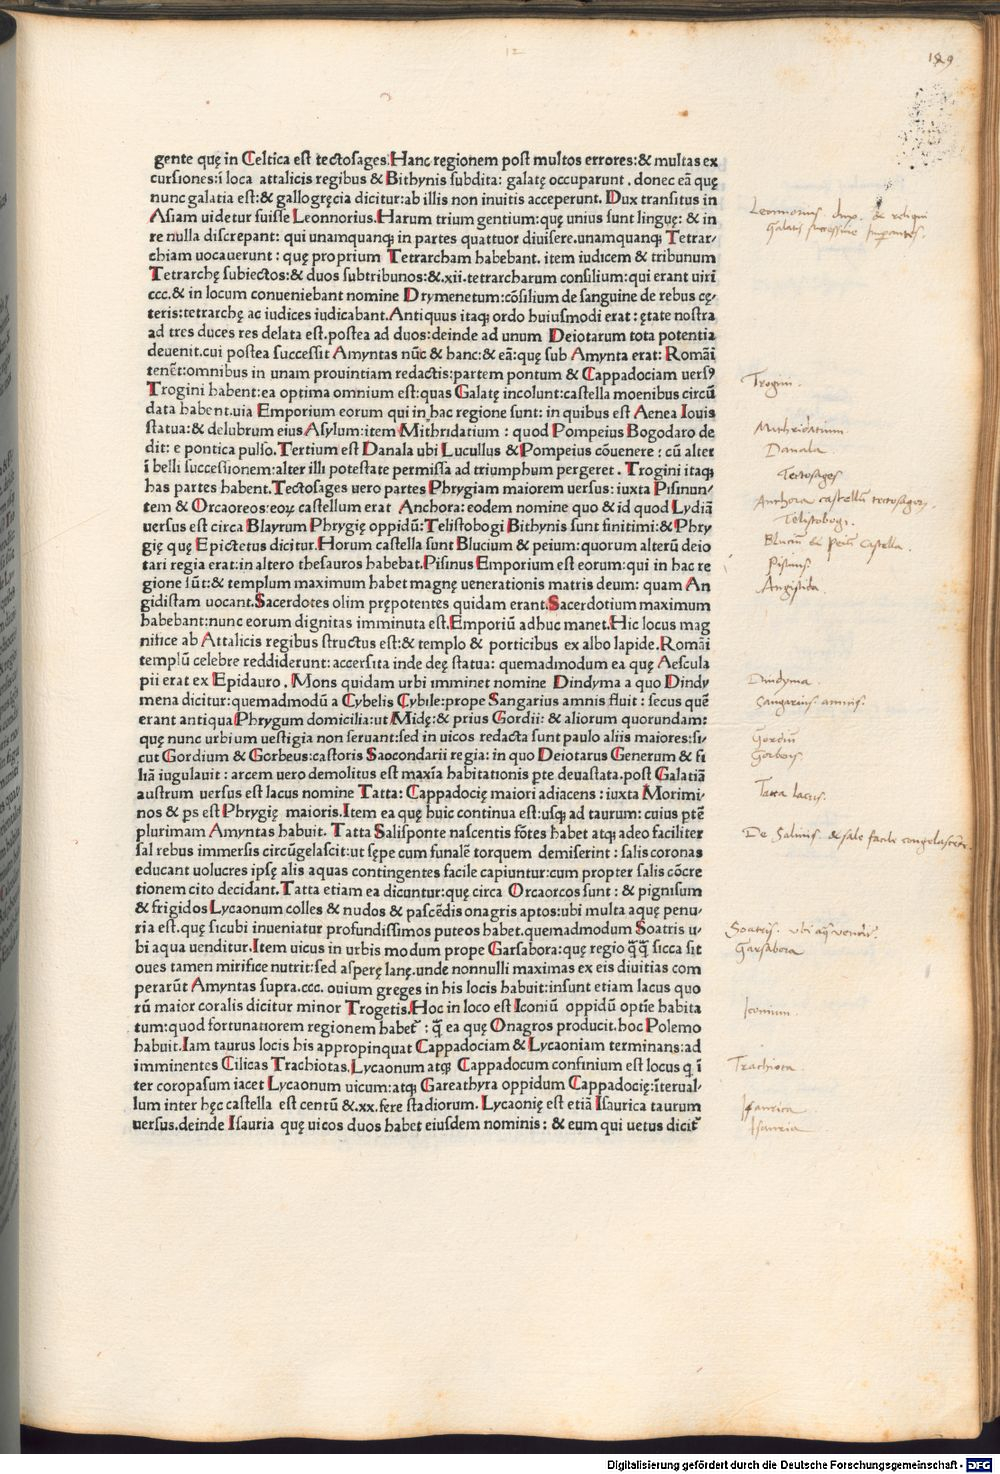 189
gente quę in Celtica est tectosages. Hanc regionem post multos errores: & multas ex
cursiones: ĩ loca attalicis regibus & Bithynis subdita: galatę occuparunt. donec eã quę
nunc galatia est: & gallogręcia dicitur: ab illis non inuitis acceperunt. Dux transitus in
Asiam uidetur fuisse Leonnorius. Harum trium gentium: quę unius sunt linguę: & in
re nulla discrepant: qui unamquanqꝫ in partes quattuor diuisere. unamquanqꝫ Tetrar-
chiam uocauerunt: quę proprium Tetrarcham habebant. item iudicem & tribunum
Tetrarchę subiectos: & duos subtribunos: &.xii. tetrarcharum consilium: qui erant uiri
ccc. & in locum conueniebant nomine Drymenetum: cõsilium de sanguine de rebus cę-
teris: tetrarchę ac iudices iudicabant. Antiquus itaqꝫ ordo huiusmodi erat: ętate nostra
ad tres duces res delata est. postea ad duos: deinde ad unum Deiotarum tota potentia
deuenit. cui postea successit Amyntas nũc & hanc: & eã: quę sub Amynta erat: Romãi
tenẽt: omnibus in unam prouintiam redactis: partem pontum & Cappadociam uersꝰ
Trogini habent: ea optima omnium est: quas Galatę incolunt: castella moenibus circũ
data habent. uia Emporium eorum qui in hac regione sunt: in quibus est Aenea Iouis
statua: & delubrum eius Asylum: item Mithridatium: quod Pompeius Bogodaro de
dit: e pontica pulso. Tertium est Danala ubi Lucullus & Pompeius cõuenere: cũ alter
ĩ belli successionem: alter illi potestate permissa ad triumphum pergeret. Trogini itaqꝫ
has partes habent. Tectosages uero partes Phrygiam maiorem uersus: iuxta Pisinun-
tem & Orcaoreos: eoꝝ castellum erat Anchora: eodem nomine quo & id quod Lydiã
uersus est circa Blayrum Phrygię oppidũ: Telistobogi Bithynis sunt finitimi: & Phry
gię quę Epictetus dicitur. Horum castella sunt Blucium & peium: quorum alterũ deio
tari regia erat: in altero thesauros habebat. Pisinus Emporium est eorum: qui in hac re
gione sũt: & templum maximum habet magnę uenerationis matris deum: quam An
gidistam uocant. Sacerdotes olim prępotentes quidam erant. Sacerdotium maximum
habebant: nunc eorum dignitas imminuta est. Emporiũ adhuc manet. Hic locus mag
nifice ab Attalicis regibus structus est: & templo & porticibus ex albo lapide. Romãi
templũ celebre reddiderunt: accersita inde deę statua: quemadmodum ea quę Aescula
pii erat ex Epidauro. Mons quidam urbi imminet nomine Dindyma a quo Dindy
mena dicitur: quemadmodũ a Cybelis Cybile: prope Sangarius amnis fluit: secus quẽ
erant antiqua Phrygum domicilia: ut Midę: & prius Gordii: & aliorum quorundam:
quę nunc urbium uestigia non seruant: sed in uicos redacta sunt paulo aliis maiores: si-
cut Gordium & Gorbeus: castoris Saocondarii regia: in quo Deiotarus Generum & fi
liã iugulauit: arcem uero demolitus est maxĩa habitationis ꝑte deuastata. post Galatiã
austrum uersus est lacus nomine Tatta: Cappadocię maiori adiacens: iuxta Morimi-
nos & ꝑs est Phrygię maioris. Item ea quę huic continua est: usqꝫ ad taurum: cuius ptẽ
plurimam Amyntas habuit. Tatta Salisponte nascentis fõtes habet atqꝫ adeo faciliter
sal rebus immersis circũgelascit: ut sępe cum funalẽ torquem demiserint: salis coronas
educant uolucres ipsę alis aquas contingentes facile capiuntur: cum propter salis cõcre
tionem cito decidant. Tatta etiam ea dicuntur: quę circa Orcaorcos sunt: & pignisum
& frigidos Lycaonum colles & nudos & pascẽdis onagris aptos: ubi multa aquę penu-
ria est. quę sicubi inueniatur profundissimos puteos habet. quemadmodum Soatris u-
bi aqua uenditur. Item uicus in urbis modum prope Garsabora: quę regio q̃q̃ sicca sit
oues tamen mirifice nutrit: sed asperę lanę. unde nonnulli maximas ex eis diuitias com
perarũt Amyntas supra. ccc. ouium greges in his locis habuit: insunt etiam lacus quo
rũ maior coralis dicitur minor Trogetis. Hoc in loco est Iconiũ oppidũ optĩe habita
tum: quod fortunatiorem regionem habet: q̃ ea quę Onagros producit. hoc Polemo
habuit. Iam taurus locis his appropinquat Cappadociam & Lycaoniam terminans: ad
imminentes Cilicas Trachiotas. Lycaonum atqꝫ Cappadocum confinium est locus q ĩ
ter coropasum iacet Lycaonum uicum: atqꝫ Gareathyra oppidum Cappadocię: ĩterual-
lum inter hęc castella est centũ &.xx. fere stadiorum. Lycaonię est etiã Isaurica taurum
uersus. deinde Isauria quę uicos duos habet eiusdem nominis: & eum qui uetus dicit᷑
Leonnorius dux. & reliqui
Galatis successiue Imperantes.
Trogini.
Mithridatium
Danala
Tectosages
Anchora castellũ tectosagũ.
Telistobogi.
Bluciũ & Peiũ Castella.
Pisinus
Angistida.
Dindyma.
Sangarius amnis.
Gordiũ
Gorbeus.
Tatta lacus.
De Salinis. & sale facile congelascẽte.
Soatris. ubi aq̃ uendit᷑.
Garsabora
Iconium.
Trachiota.
Isaurica
Isauria
Digitalisierung gefördert durch die Deutsche Forschungsgemeinschaft - DFG